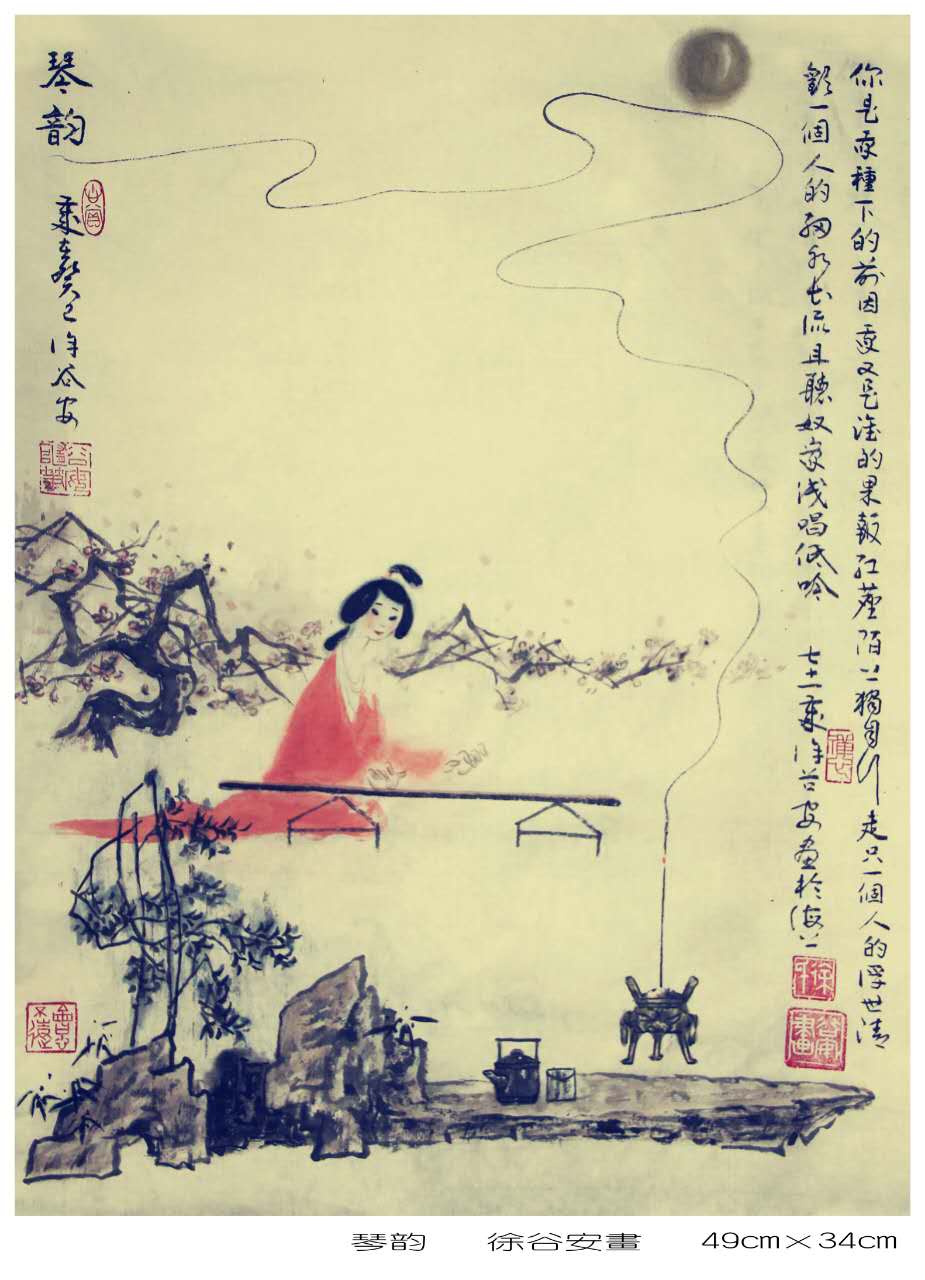 你是我種下的前因我又是誰的果報紅塵陌上獨自行走只一個人的浮世清
歡一個人的細水長流且聽奴家浅唱低吟 七十一歲徐谷安畫於海上
琴韵
歲在癸巳徐谷安
琴韵 徐谷安畫 49cm×34cm